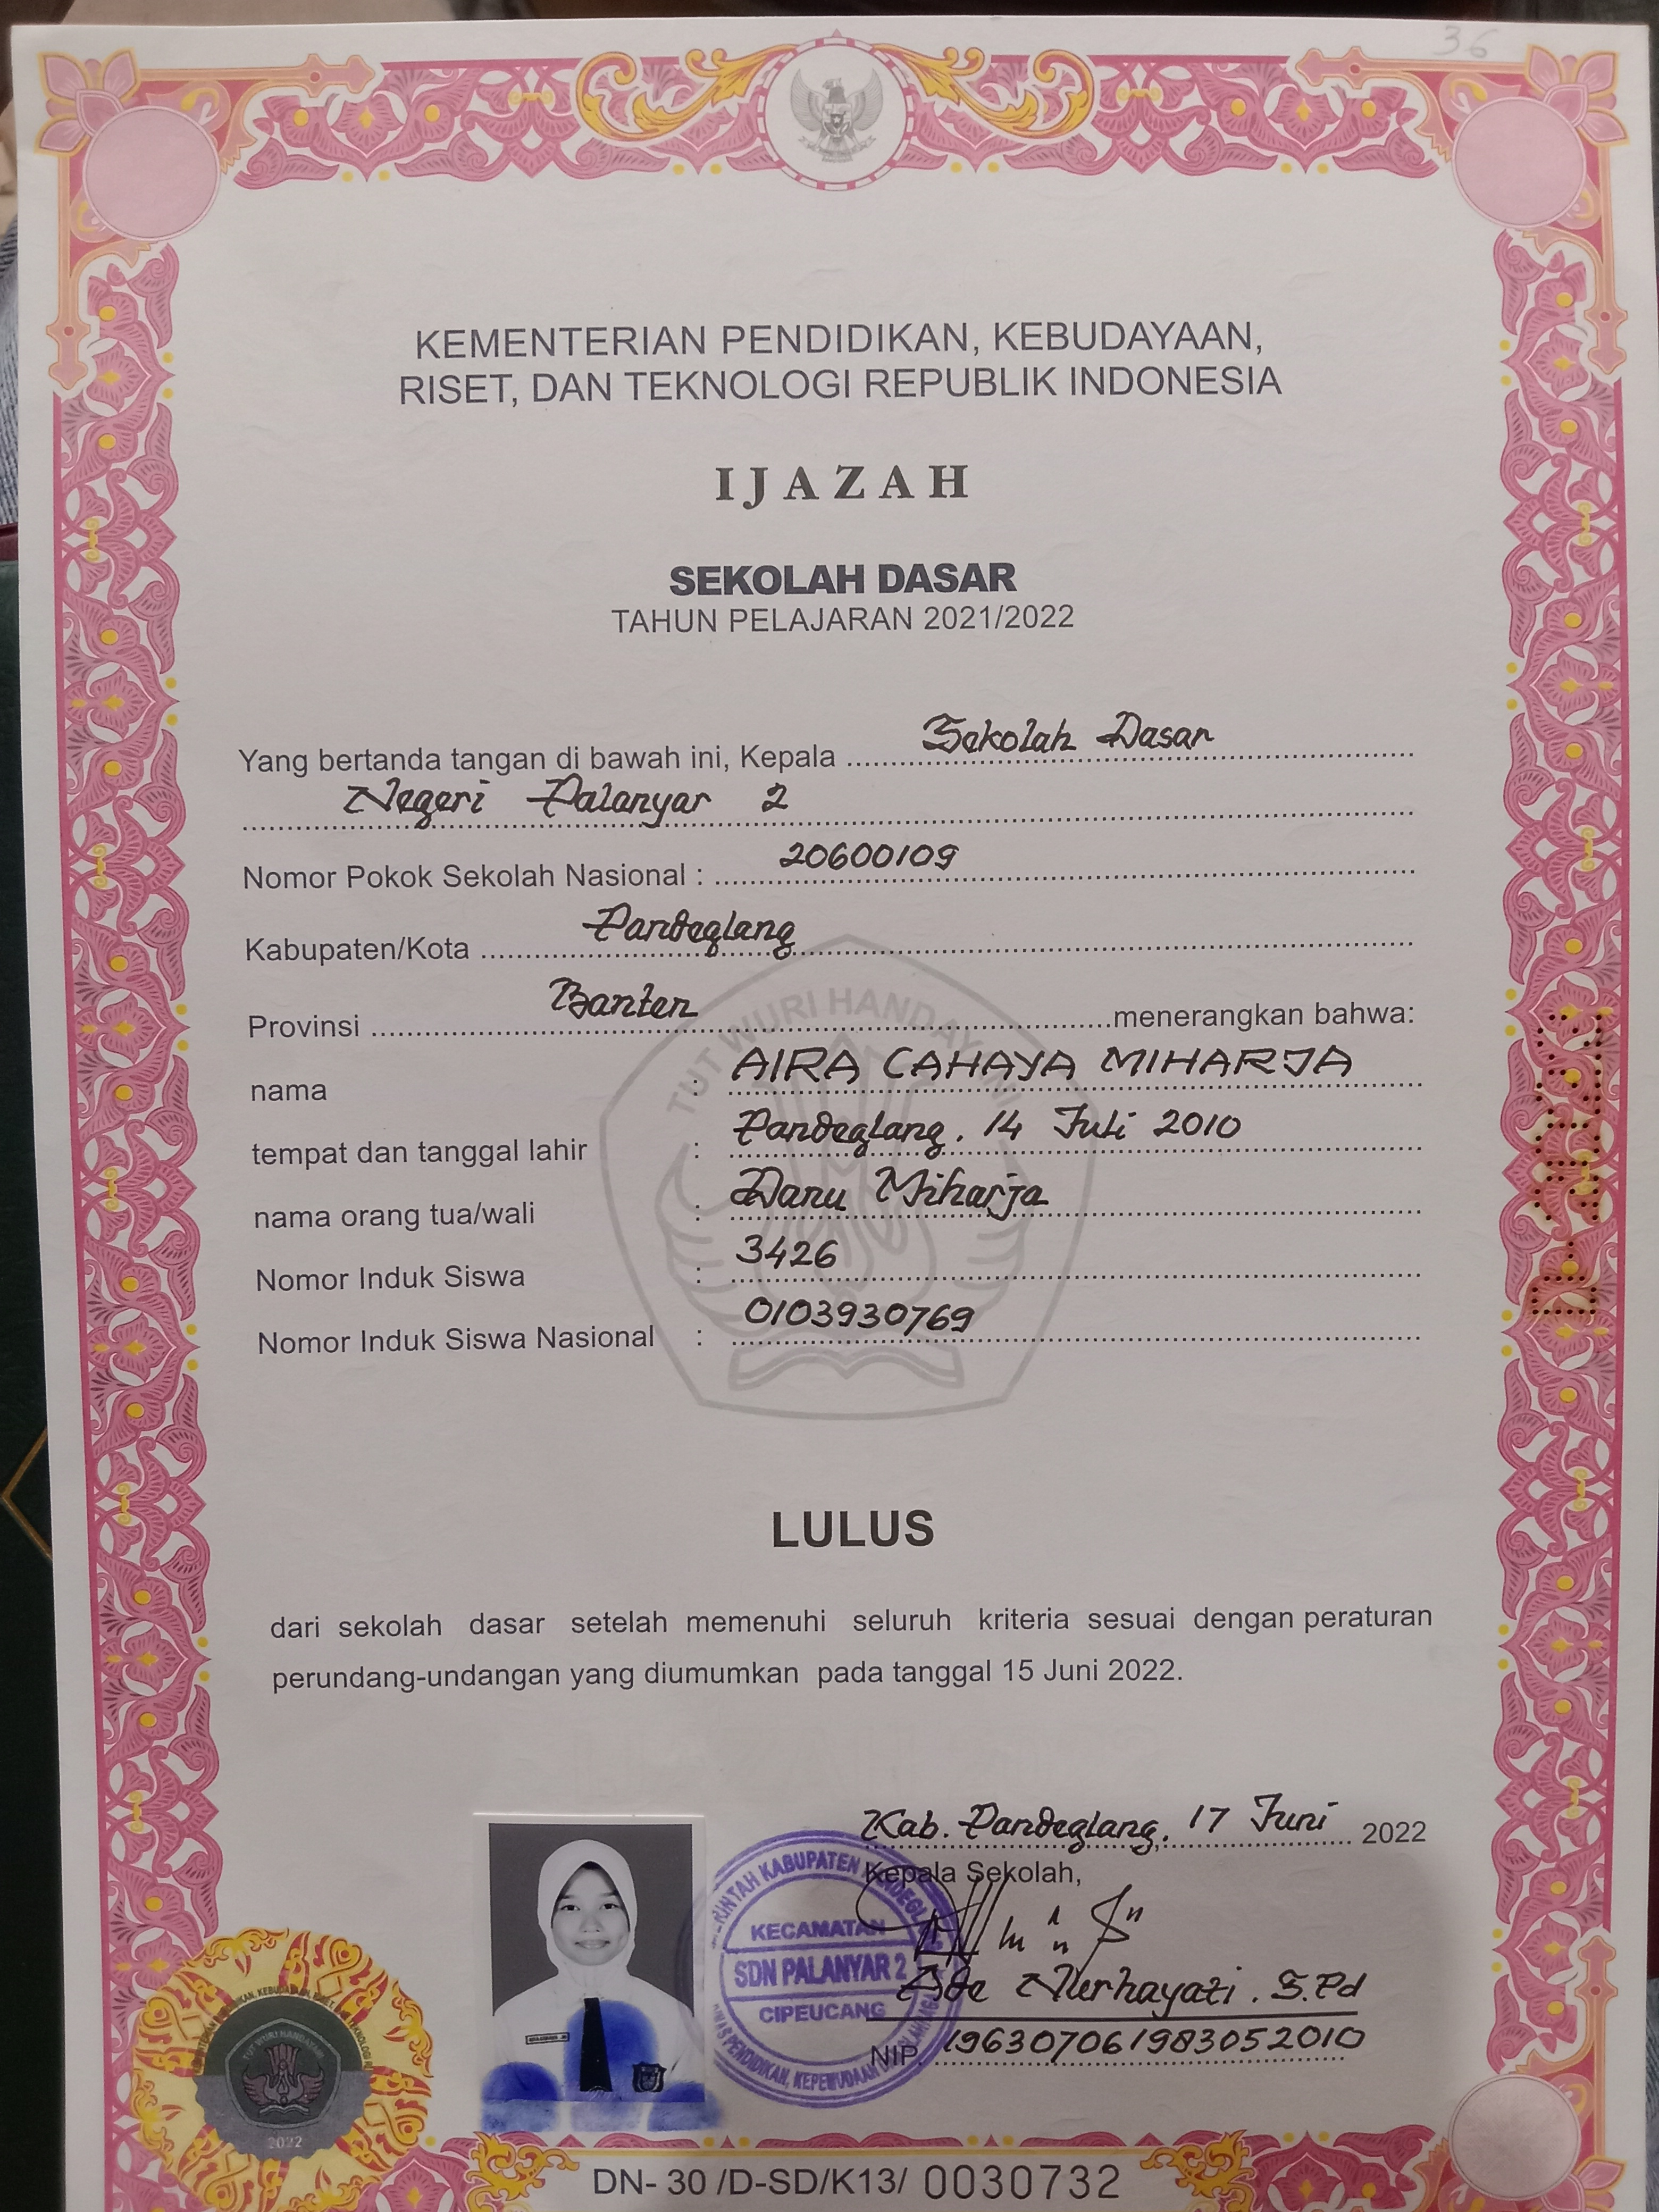 36
KEMENTERIAN PENDIDIKAN, KEBUDAYAAN,
RISET, DAN TEKNOLOGI REPUBLIK INDONESIA
IJAZAH
SEKOLAH DASAR
TAHUN PELAJARAN 2021/2022
Yang bertanda tangan di bawah ini, Kepala Sekolah Dasar
Negeri Palanyar 2
Nomor Pokok Sekolah Nasional : 20600109
Kabupaten/Kota Pandeglang
Provinsi Banten menerangkan bahwa:
nama : AIRA CAHAYA MIHARJA
tempat dan tanggal lahir : Pandeglang, 14 Juli 2010
nama orang tua/wali : Danu Miharja
Nomor Induk Siswa : 3426
Nomor Induk Siswa Nasional : 0103930769
TUT WURI HANDAYANI
LULUS
dari sekolah dasar setelah memenuhi seluruh kriteria sesuai dengan peraturan
perundang-undangan yang diumumkan pada tanggal 15 Juni 2022.
Kab. Pandeglang, 17 Juni 2022
Kepala Sekolah,
KECAMATAN
SDN PALANYAR 2
CIPEUCANG
Ade Nurhayati. S.Pd
NIP. 196307061983052010
TUT WURI HANDAYANI
2022
DN- 30 /D-SD/K13/ 0030732